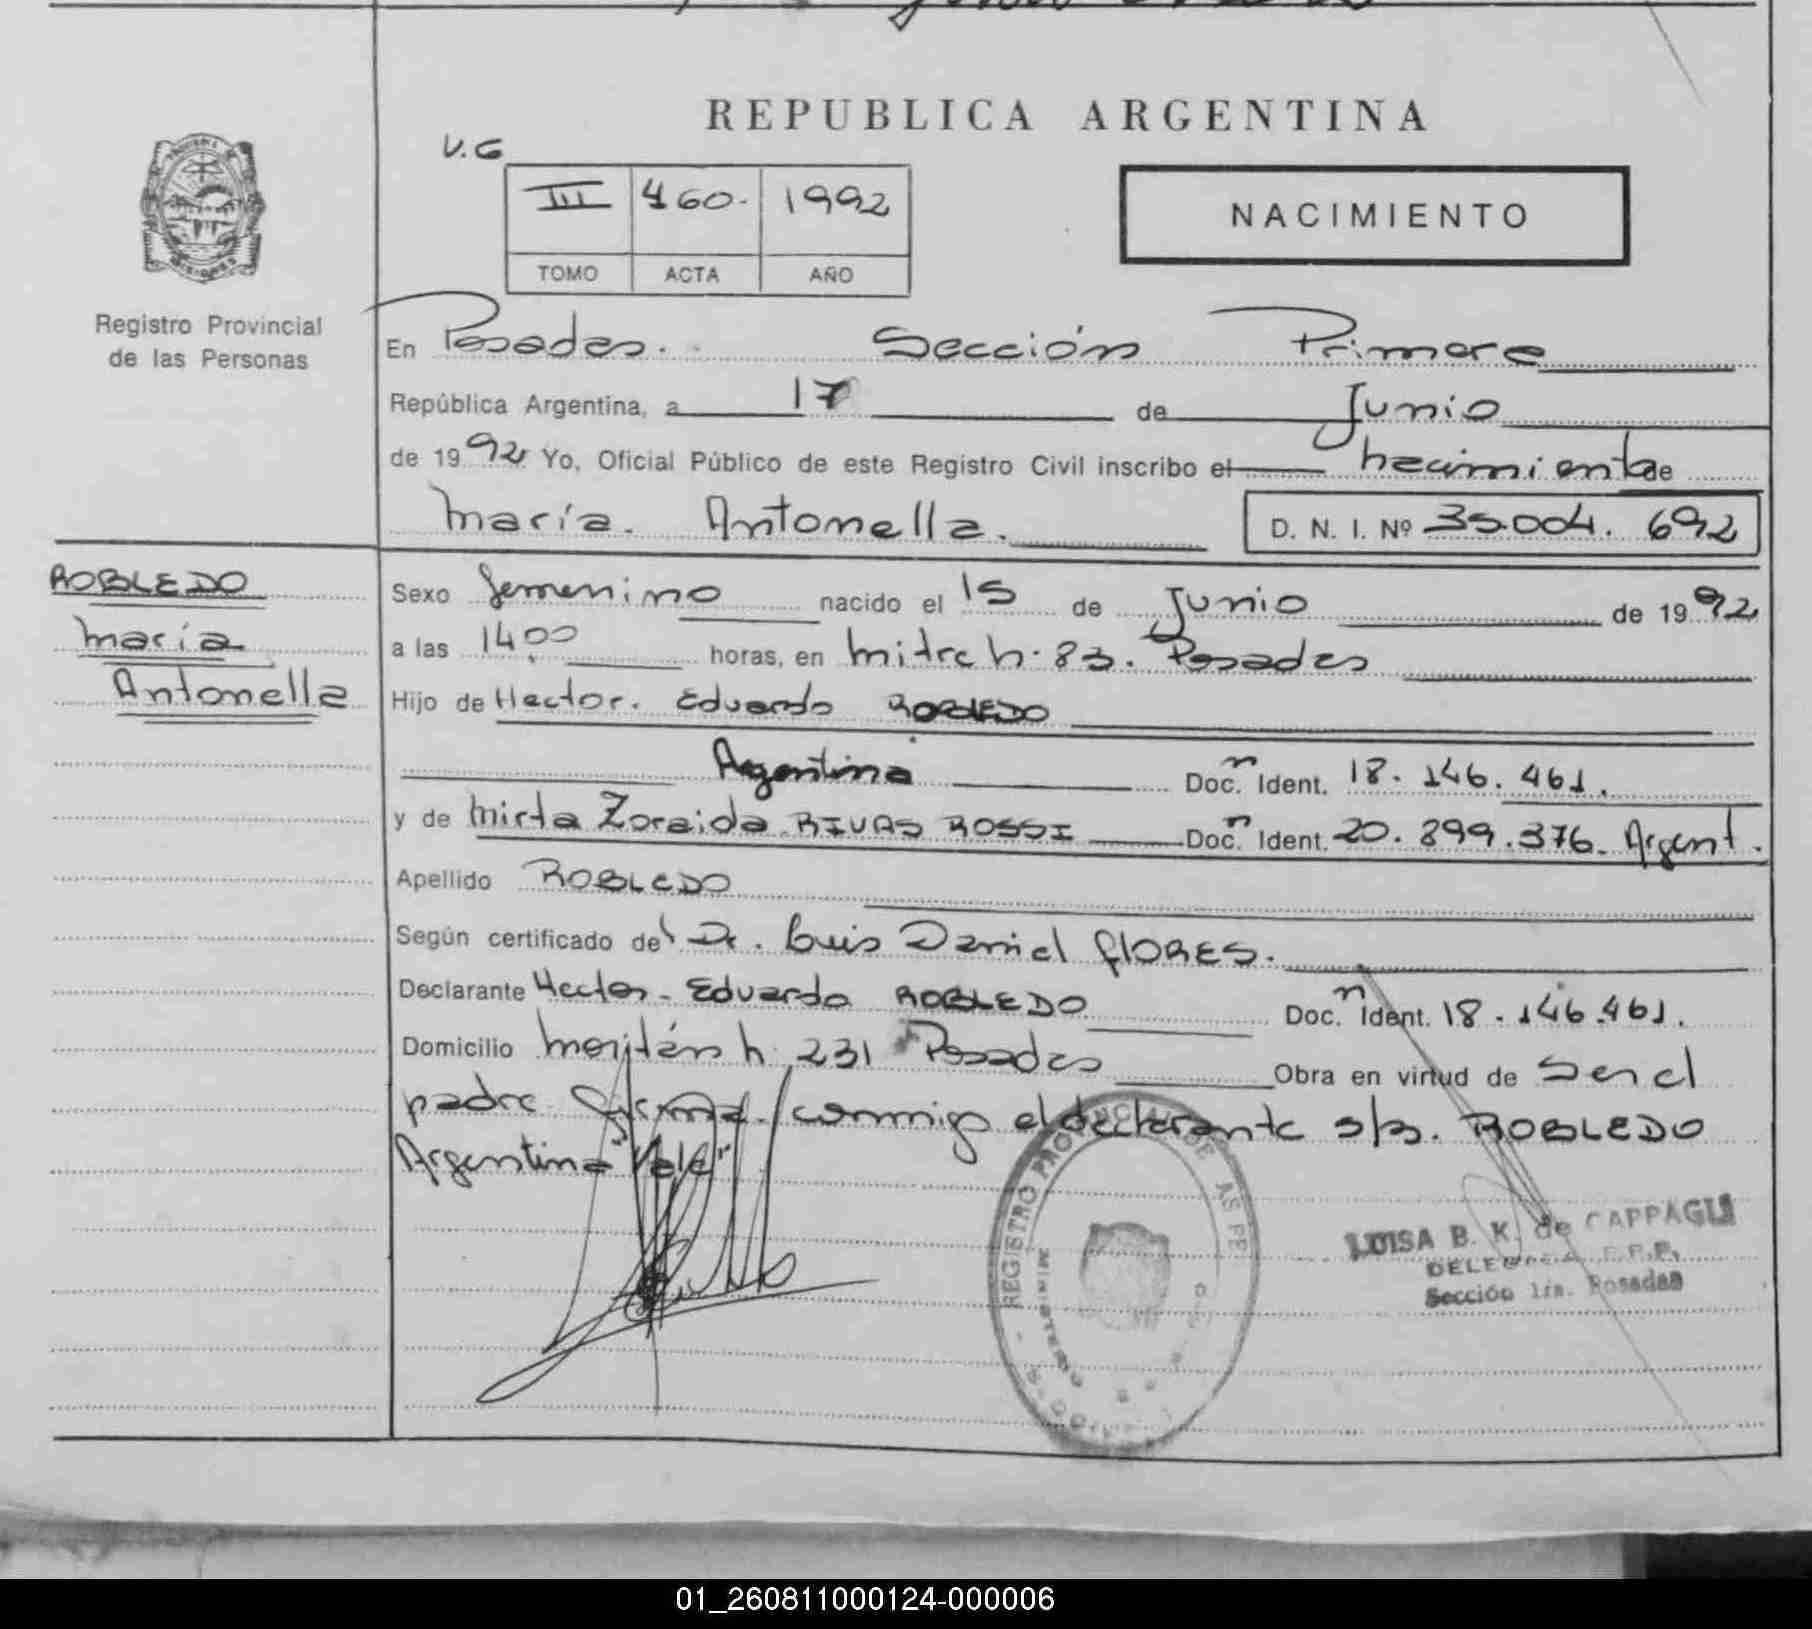 REPUBLICA ARGENTINA
V.G
III 460. 1992
TOMO ACTA AÑO
NACIMIENTO
Registro Provincial
de las Personas
En Posadas. Sección Primera
República Argentina, a 17 de Junio
de 1992 Yo, Oficial Público de este Registro Civil inscribo el nacimiento de
María. Antonella. D. N. I. Nº 35.004.692
ROBLEDO
María
Antonella
Sexo femenino nacido el 15 de Junio de 1992
a las 14.00 horas, en Mitre N. 83. Posadas
Hijo de Hector. Eduardo ROBLEDO
Argentina Doc. n Ident. 18.146.461.
y de Mirta Zoraida RIVAS ROSSI Doc. n Ident. 20.899.376. Argent.
Apellido ROBLEDO
Según certificado del Dr. Luis Daniel FLORES.
Declarante Hector. Eduardo ROBLEDO Doc. n Ident. 18.146.461.
Domicilio N. 231 Posadas Obra en virtud de Ser el
padre Firma conmigo el declarante s/s. ROBLEDO
Argentina "Vale"
REGISTRO PROVINCIAL DE LAS PE
LUISA B. K. de CAPPAGLI
Sección 1ra. Posadas
01_260811000124-000006